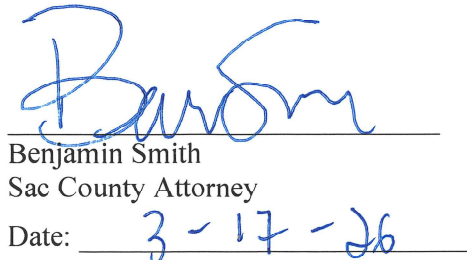 Benjamin Smith
Sac County Attorney
Date: 3-17-26